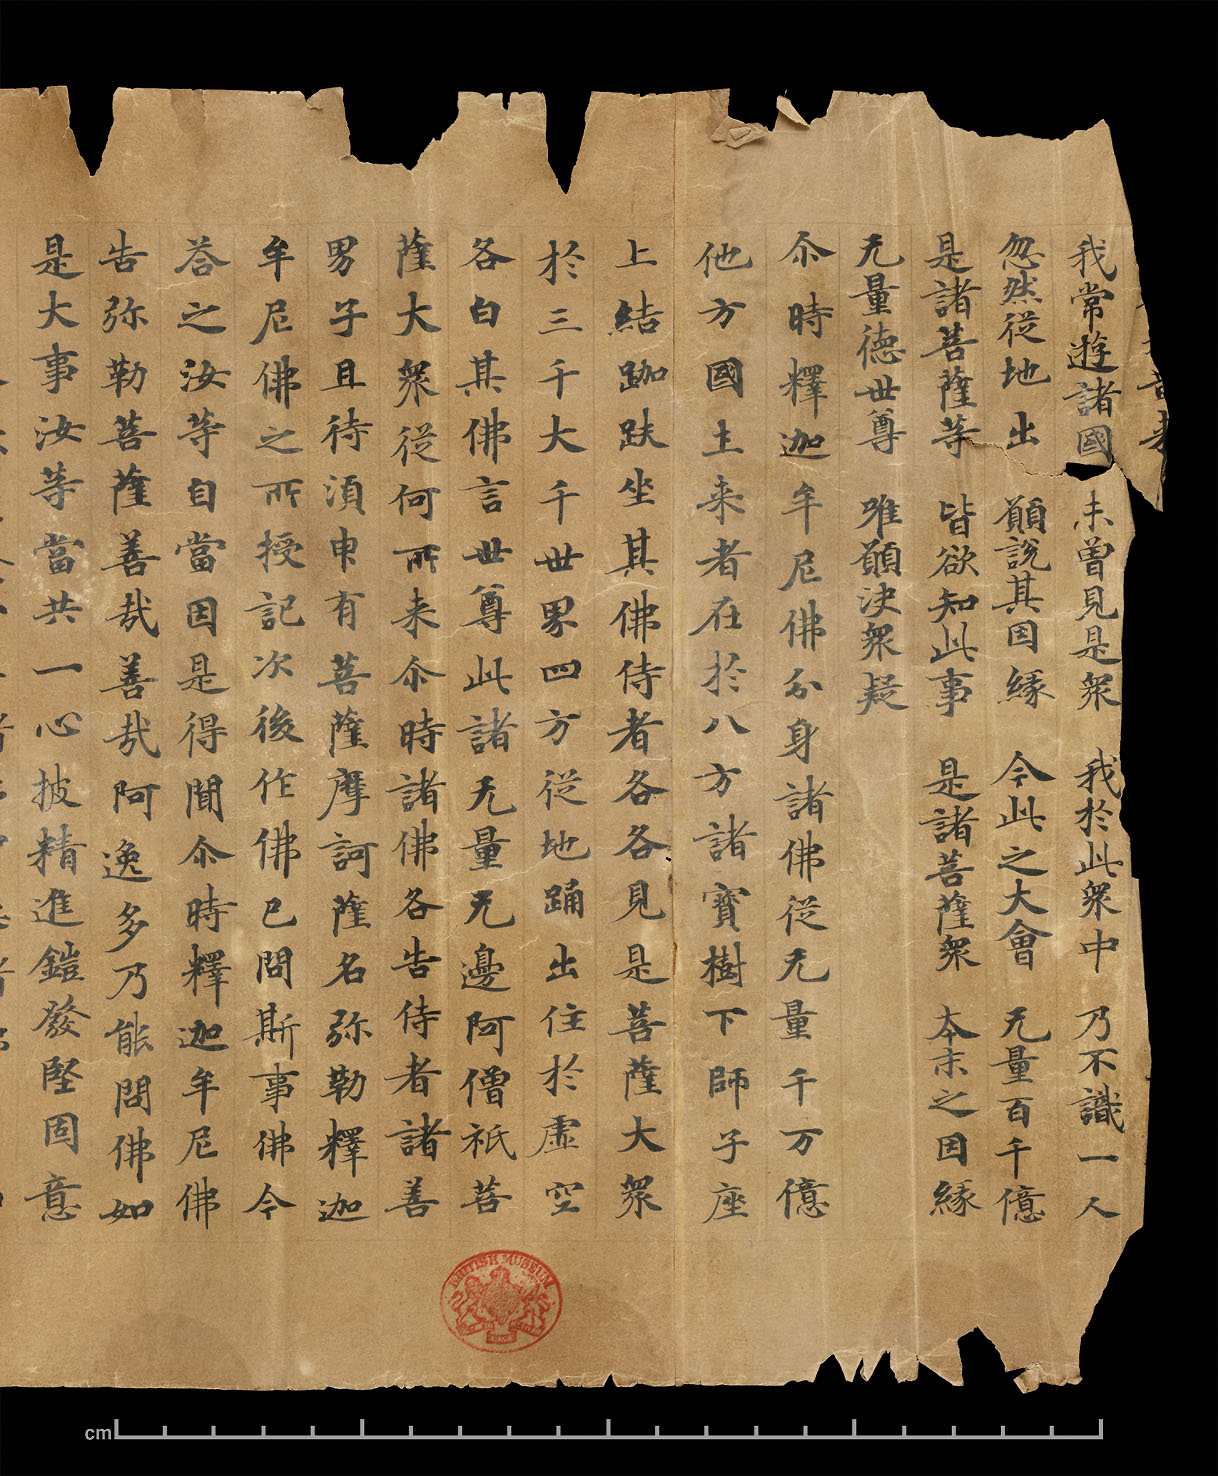 我常遊諸國 未曾見是衆 我於此衆中 乃不識一人
忽然從地出 願說其因緣 今此之大會 无量百千億
是諸菩薩等 皆欲知此事 是諸菩薩衆 本末之因緣
无量德世尊 唯願決衆疑
尒時釋迦牟尼佛分身諸佛從无量千万億
他方國土来者在於八方諸寶樹下師子座
上結跏趺坐其佛侍者各各見是菩薩大衆
於三千大千世界四方從地踊出住於虛空
各白其佛言世尊此諸无量无邊阿僧祇菩
薩大衆從何所来尒時諸佛各告侍者諸善
男子且待湏申有菩薩摩訶薩名弥勒釋迦
牟尼佛之所授記次後作佛已問斯事佛今
荅之汝等自當因是得聞尒時釋迦牟尼佛
告弥勒菩薩善哉善哉阿逸多乃能問佛如
是大事汝等當共一心披精進鎧發堅固意
BRITISH MUSEUM
cm